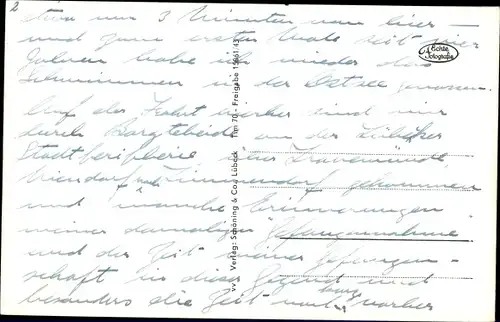 2
etwa nur 3 Minuten von hier —
und zum ersten Male seit vier
Jahren habe ich wieder das
Schwimmen in der Ostsee genossen.
Auf der Fahrt hierher sind wir
durch Bargteheide an der Lübecker
über Travemünde
Niendorf nach Timmendorf gekommen
und manche Erinnerungen
meiner damaligen Gefangennahme
und der Zeit meiner Gefangen-
schaft in dieser Gegend und
besonders die Zeit kurz vorher
Echte Fotografie
VV Verlag: Schöning & Co., Lübeck Tim 70 - Freigabe